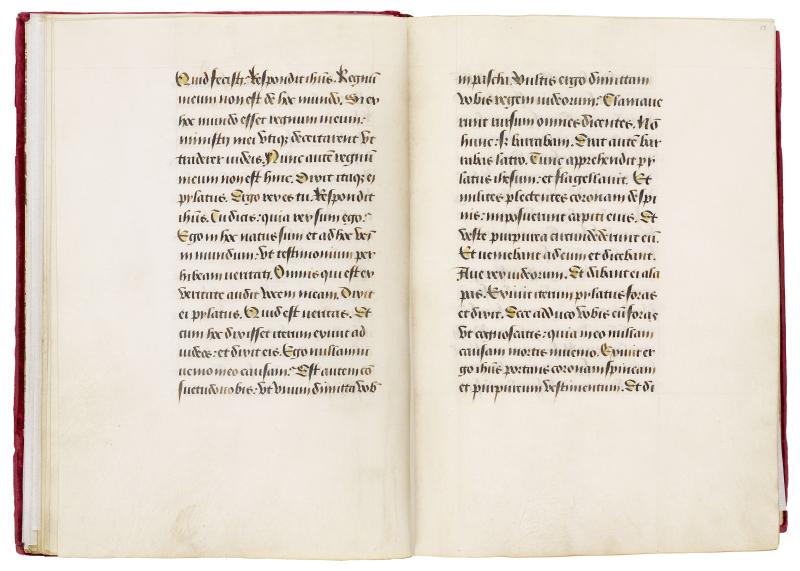 Quid fecisti. Respondit ihūs. Regnū
meum non est de hoc mundo. Si ex
hoc mundo esset regnum meum:
ministri mei vtiqȝ decertarent vt
traderer iudeis. Nunc autē regnū
meum non est hinc. Dixit itaqȝ ei
pylatus. Ergo rex es tu. Respondit
ihūs. Tu dicis: quia rex sum ego.
Ego in hoc natus sum et ad hoc veī
in mundum: vt testimonium per
hibeam veritati. Omnis qui est ex
veritate audit vocem meam. Dixit
ei pylatus. Quid est veritas. Et
cum hoc dixisset iterum exiuit ad
iudeos: et dixit eis. Ego nullam in
uenio meo causam. Est autem cō
suetudo vobis: vt vnum dimittā vob
in paschi. Vultis ergo dimittam
vobis regem iudeorum. Clamaue
runt rursum omnes dicentes. Nō
hunc: sꝫ barrabam. Erat autē bar
rabas latro. Tunc apprehendit py
latus ihesum: et flagellauit. Et
milites plectentes coronam de spi
nis: imposuerunt capiti eius. Et
veste purpurea circundederunt eū.
Et veniebant ad eum et dicebant.
Aue rex iudeorum. Et dabant ei ala
pas. Exiuit iterum pylatus foras
et dixit. Ecce adduco vobis eū foras
vt cognoscatis: quia in eo nullam
causam mortis inuenio. Exiuit er
go ihūs portans coronam spineam
et purpureum vestimentum. Et di